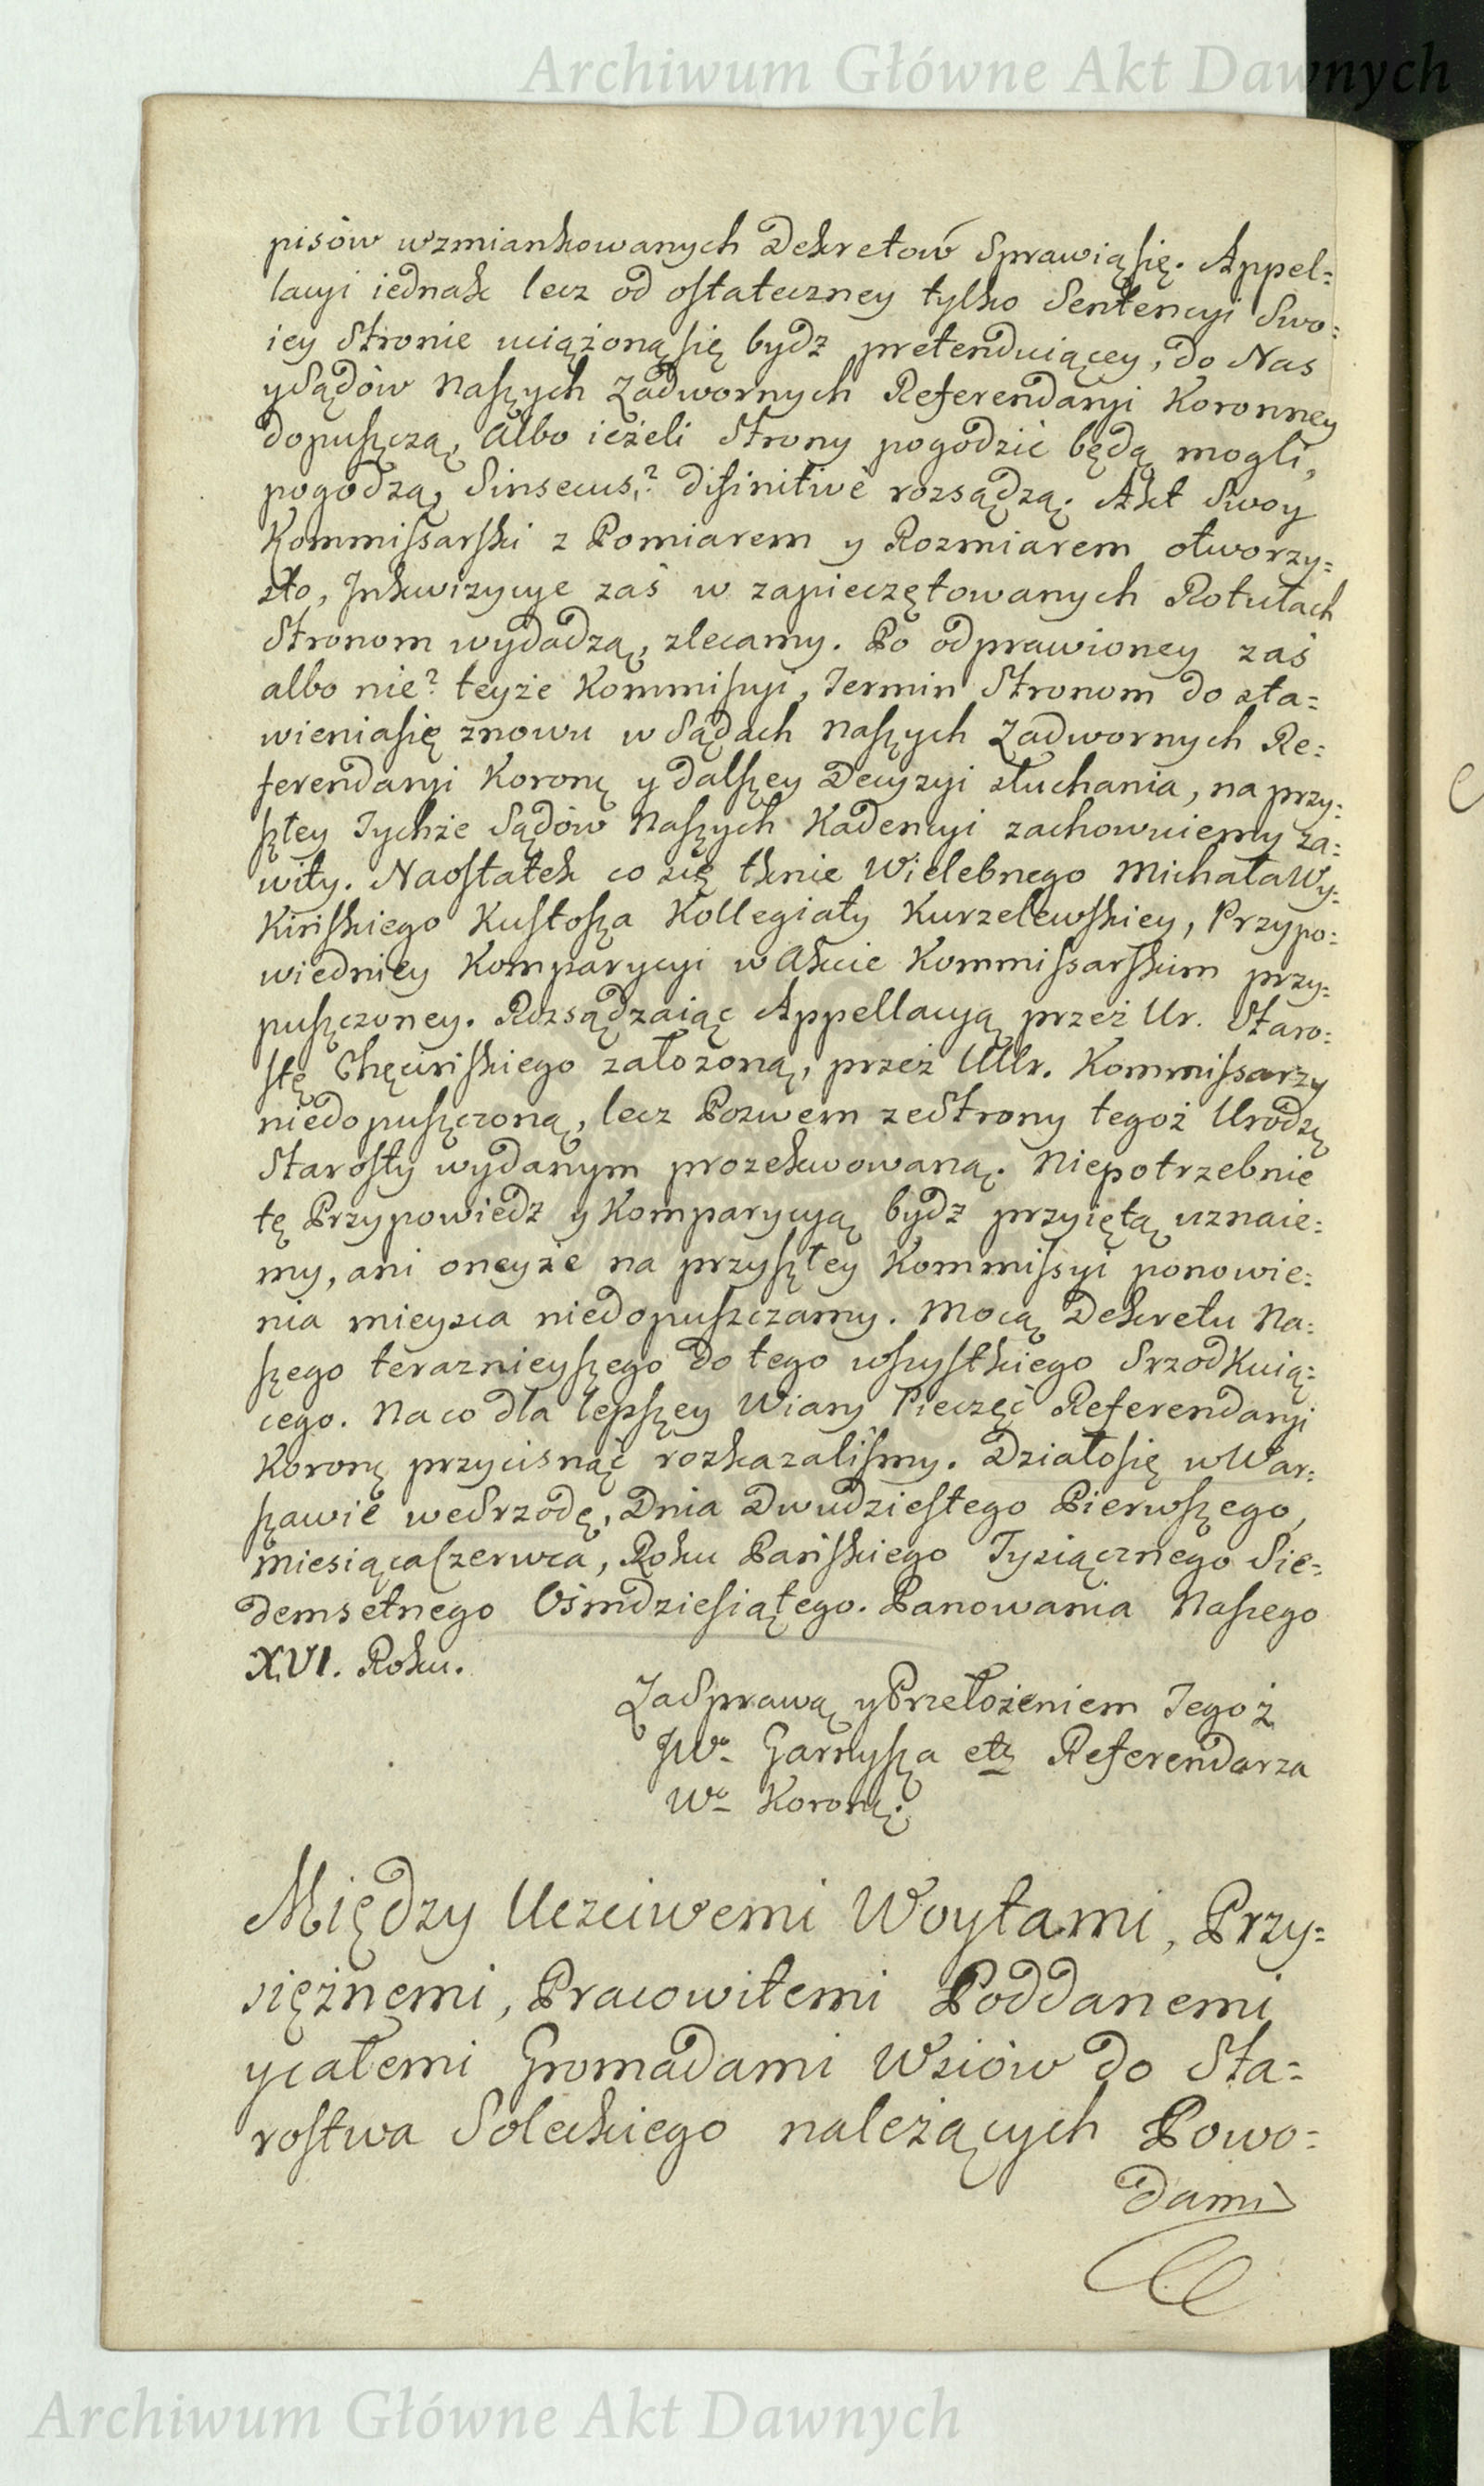 Archiwum Główne Akt Dawnych
pisów wzmiankowanych Dekretów Sprawią się. Appel=
lacyi iednak lecz od ostateczney tylko Sentencyi Swo=
iey Stronie uciążoną się bydz pretenduiącey, do Nas
y Sądów Naszych Zadwornych Referendaryi Koronney
dopuszczą, Albo ieżeli Strony pogodzić będą mogli,
pogodzą, Sinsecus? difinitivè rozsądzą. Akt Swoy
Kommissarski z Pomiarem y Rozmiarem otworzy=
sto, Inkwizycye zaś w zapieczętowanych Rotułach
Stronom wydadzą, zlecamy. Po odprawioney zaś
albo nie? teyże Kommissyi, Termin Stronom do sta=
wienia się znowu w Sądach Naszych Zadwornych Re=
ferendaryi Koronę y dalszey Decyzyi słuchania, na przy=
szłey Tychże Sądów Naszych Kadencyi zachowuiemy za=
wity. Naostatek co się tknie Wielebnego Michała Wy=
Kińskiego Kustosza Kollegiaty Kurzelewskiey, Przypo=
wiedniey Komparycyi w Akcie Kommissarskim przy=
puszczoney. Rozsądzaiąc Appellacyą przez Ur. Staro=
stę Chęcińskiego założoną, przez UUr. Kommissarzy
niedopuszczoną, lecz Pozwem ze Strony tegoż Urodzę
Starosty wydanym prozekwowaną. Niepotrzebnie
tę Przypowiedz y Komparycyą bydz przyiętą uznaie=
my, ani oneyże na przyszłey Kommissyi ponowie=
nia mieysca niedopuszczamy. Mocą Dekretu Na=
szego teraznieyszego do tego wszystkiego Srzodkuią=
cego. Na co dla lepszey Wiary Pieczęć Referendaryi
Koronę przycisnąć rozkazaliśmy. Działo się w War=
szawie we Srzodę, Dnia Dwudziestego Pierwszego,
Miesiąca Czerwca, Roku Pańskiego Tysiącznego Sie=
demsetnego Ośmdziesiątego. Panowania Naszego
XVI. Roku.
Za Sprawą y Przełożeniem Tegoż
JWo Garnysza etc Referendarza
Wo Koronę.
Między Uczciwemi Woytami, Przy=
siężnemi, Pracowitemi Poddanemi
y całemi Gromadami Wsiów do Sta=
rostwa Soleckiego należących Powo=
dami
Archiwum Główne Akt Dawnych